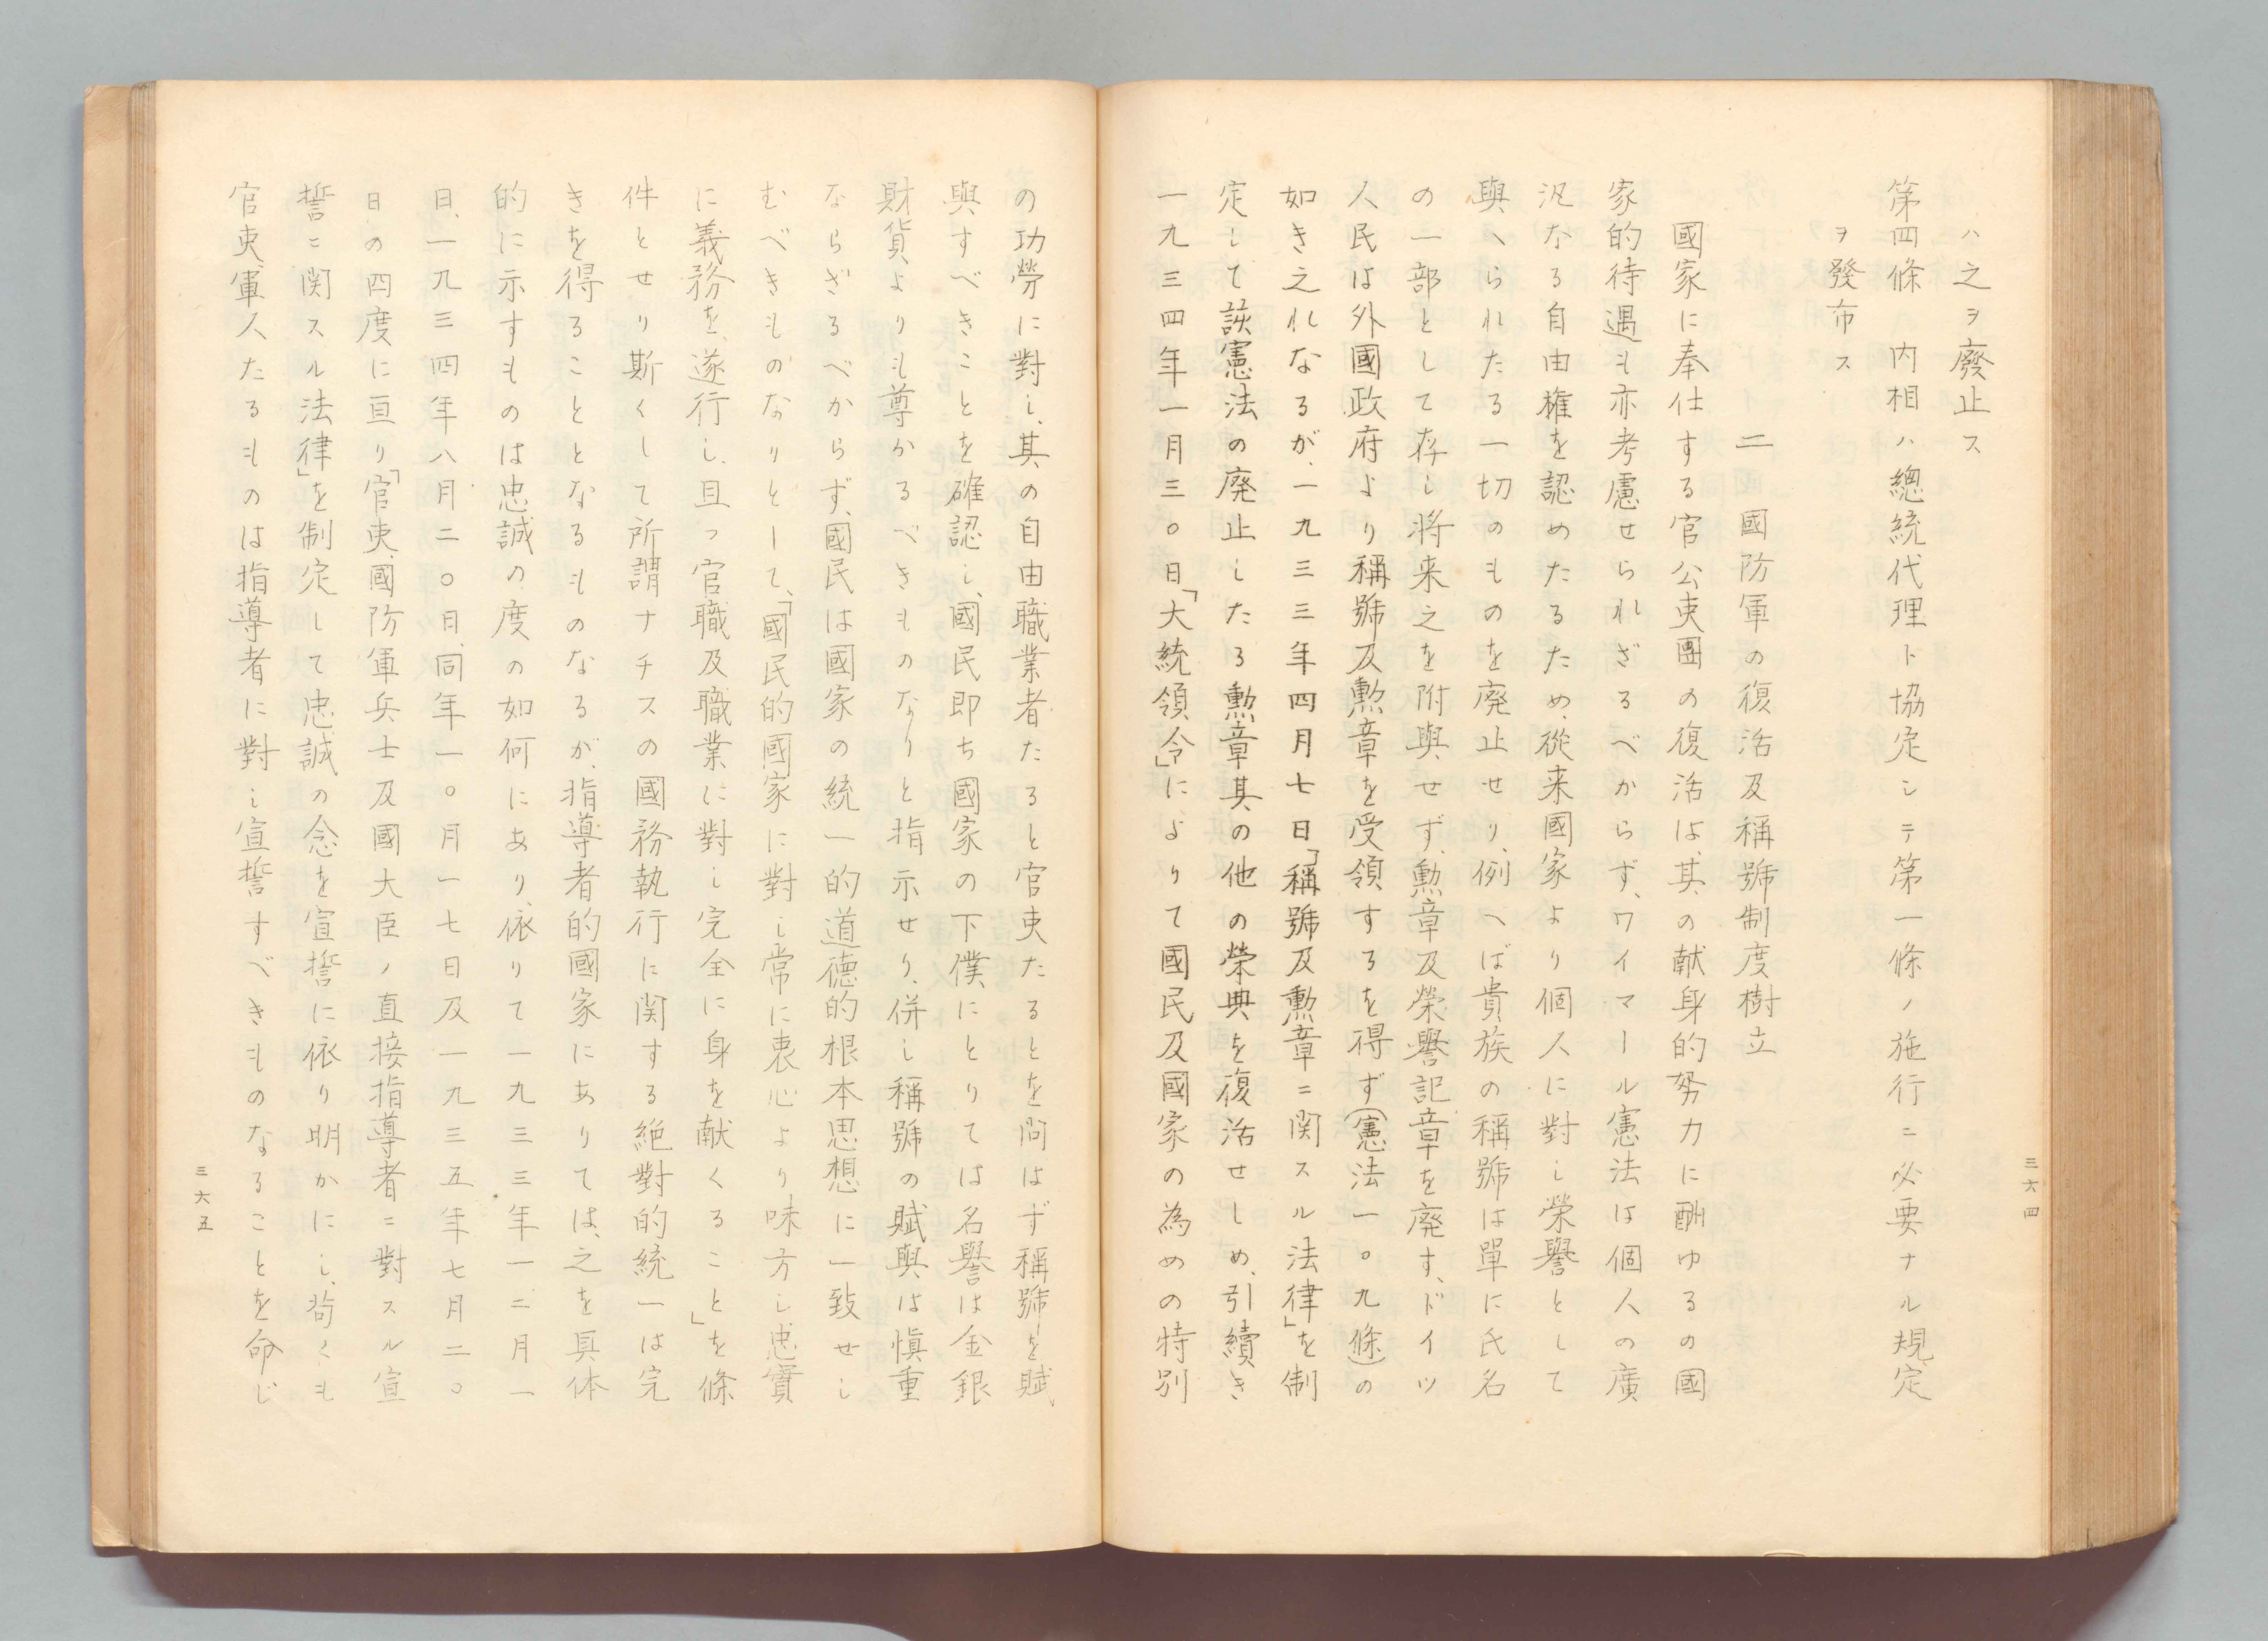 三六四
ハ之ヲ廢止ス
第四條　內相ハ總統代理ト協定シテ第一條ノ施行ニ必要ナル規定
ヲ發布ス
二　國防軍の復活及稱號制度樹立
國家に奉仕する官公吏團の復活は、其の献身的努力に酬ゆるの國
家的待遇も亦考慮せられざるべからず、ワイマール憲法は個人の廣
汎なる自由權を認めたるため、從来國家より個人に對し榮譽として
與へられたる一切のものを廃止せり、例へば貴族の稱號は單に氏名
の一部として存し将来之を附與せず、勲章及榮譽記章を廃す、ドイツ
人民は外國政府より稱號及勲章を受領するを得ず（憲法一〇九條）の
如き之れなるが、一九三三年四月七日「稱號及勲章ニ関スル法律」を制
定して該憲法の廃止したる勲章其の他の榮典を復活せしめ、引續き
一九三四年一月三〇日「大統領令」によりて國民及國家の為めの特別
の功勞に對し、其の自由職業者たると官吏たるとを問はず稱號を賦
與すべきことを確認し、國民即ち國家の下僕にとりては名譽は金銀
財貨よりも尊かるべきものなりと指示せり、併し稱號の賦與は愼重
ならざるべからず、國民は國家の統一的道德的根本思想に一致せし
むべきものなりとして、「國民的國家に對し常に衷心より味方し忠實
に義務を遂行し、且つ官職及職業に對し完全に身を献くること」を條
件とせり斯くして所謂ナチスの國務執行に関する絶對的統一は完
きを得ることとなるものなるが、指導者的國家にありては、之を具体
的に示すものは忠誠の度の如何にあり、依りて一九三三年一二月一
日、一九三四年八月二〇日、同年一〇月一七日及一九三五年七月二〇
日の四度に亘り「官吏、國防軍兵士及國大臣ノ直接指導者ニ對スル宣
誓ニ関スル法律」を制定して忠誠の念を宣誓に依り明かにし、苟くも
官吏、軍人たるものは指導者に對し宣誓すべきものなることを命じ
三六五